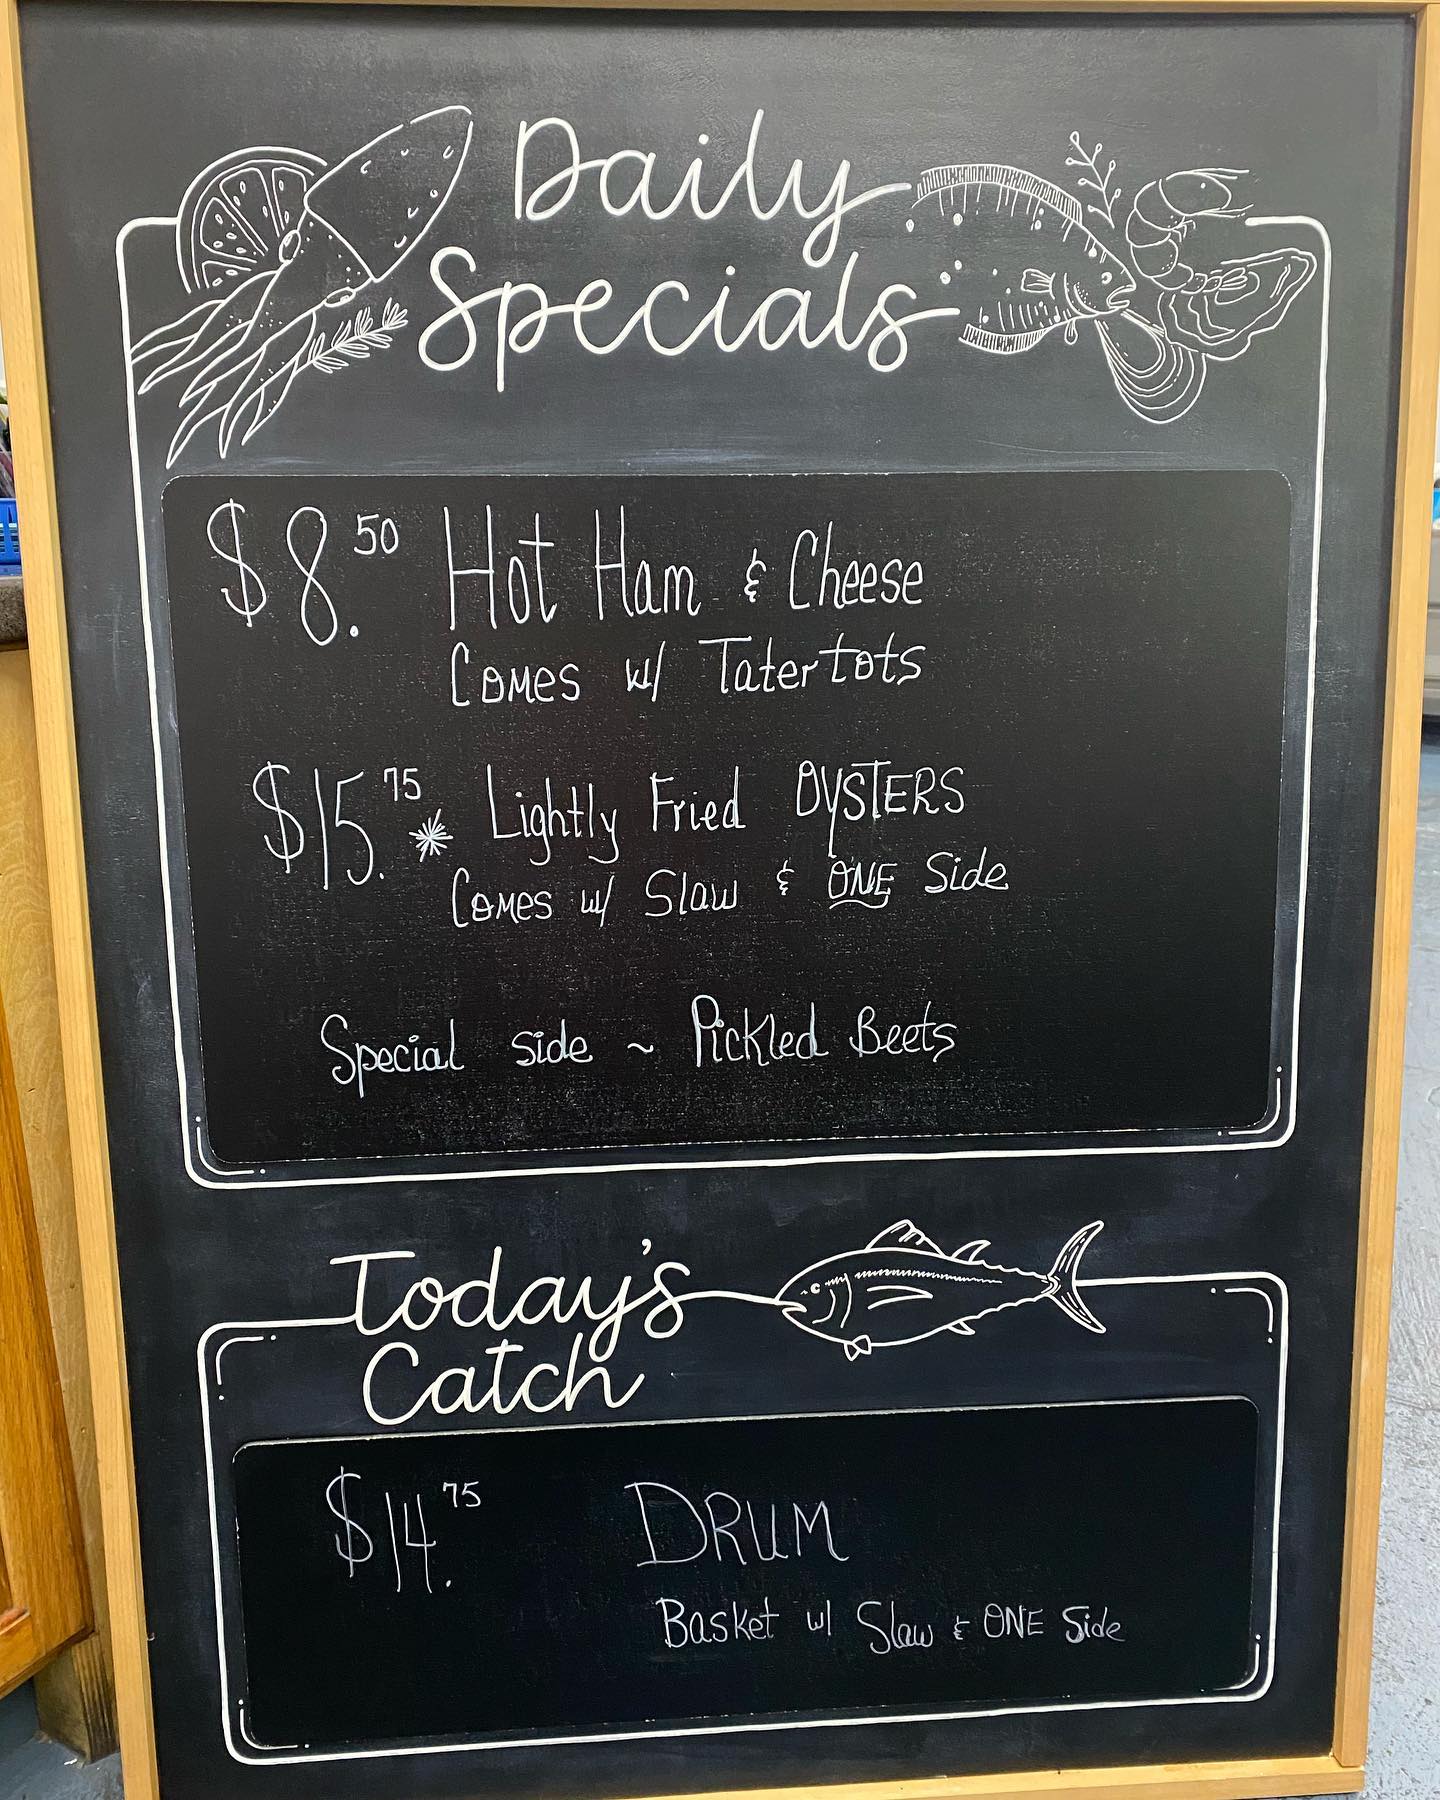 Daily
Specials
$8.50 Hot Ham & Cheese
Comes w/ Tatertots
$15.75 * Lightly Fried OYSTERS
Comes w/ Slaw & ONE Side
Special side ~ Pickled Beets
Today's
Catch
$14.75 DRUM
Basket w/ Slaw & ONE Side